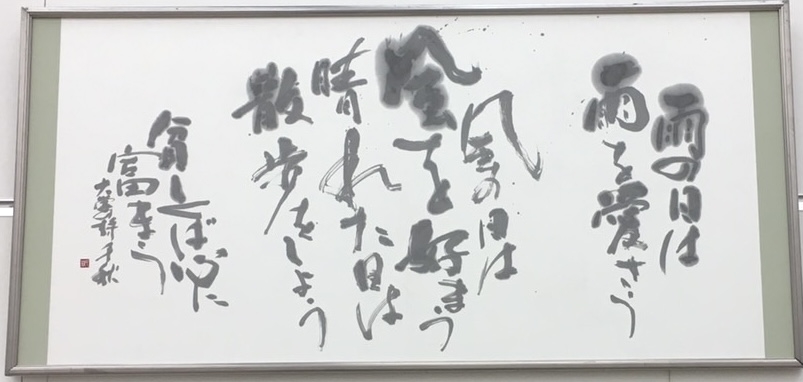 雨の日は
雨を愛さう
風の日は
風を好まう
晴れた日は
散歩をしよう
貧しくば心に
富まう
大學詩